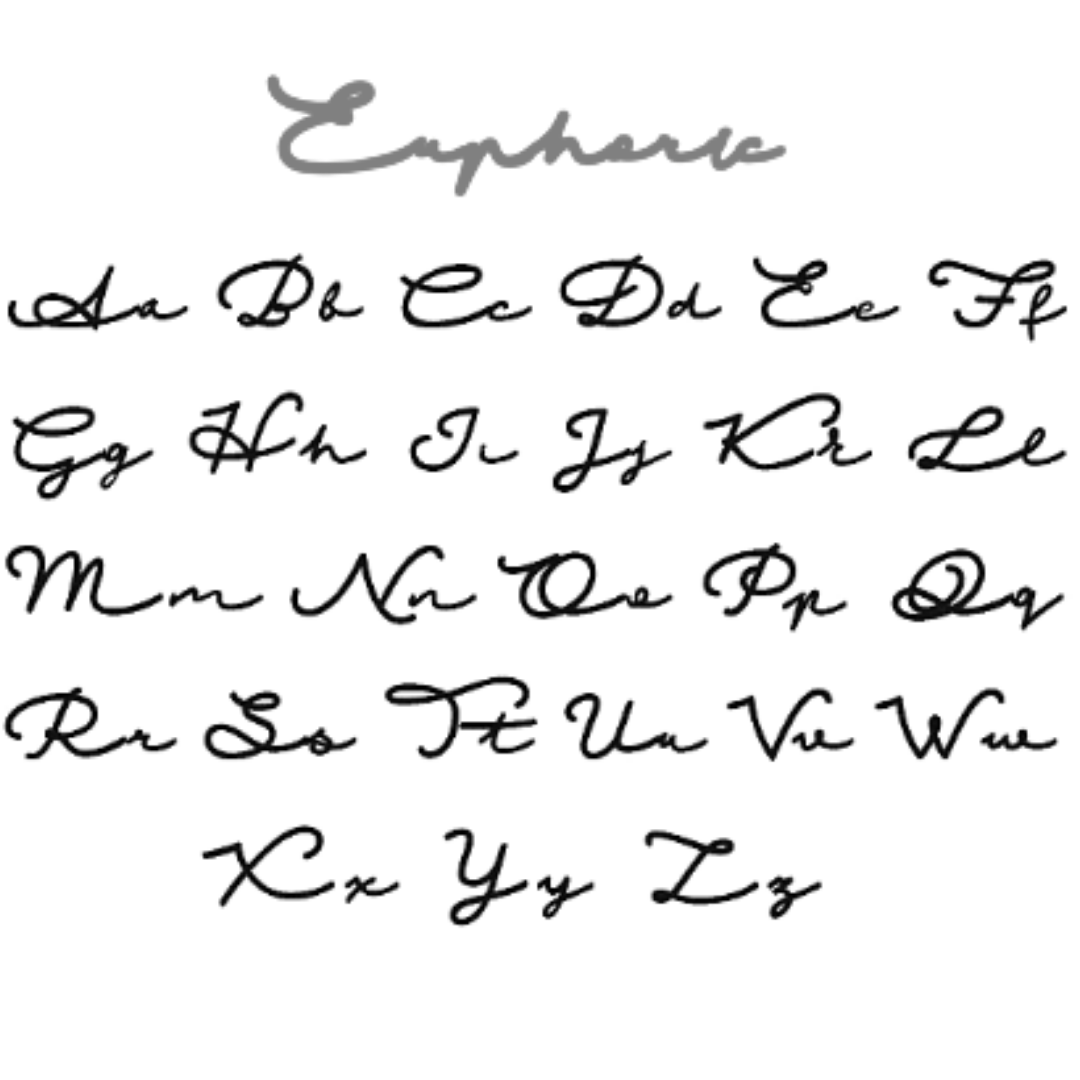 Euphoric
Aa Bb Cc Dd Ee Ff
Gg Hh Ii Jj Kk Ll
Mm Nn Oo Pp Qq
Rr Ss Tt Uu Vv Ww
Xx Yy Zz